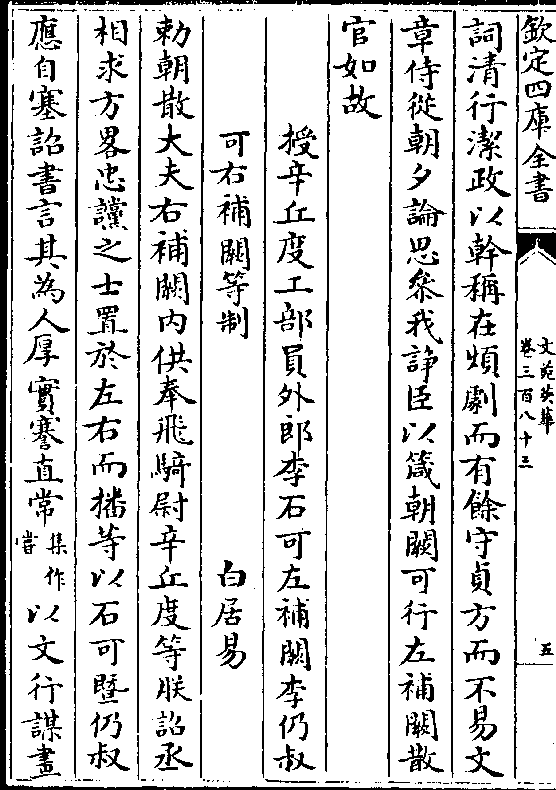 欽定四庫全書
文苑英華
卷三百八十三
五
詞清行潔政以幹稱在煩劇而有餘守貞方而不易文
章侍從朝夕論思叅我諍臣以箴朝闕可行左補闕散
官如故
授辛丘度工部員外郎李石可左補闕李仍叔
可右補闕等制
白居易
勅朝散大夫右補闕内供奉飛騎尉辛丘度等朕詔丞
相求方畧忠讜之士置於左右而播等以石可暨仍叔
應自塞詔書言其為人厚實謇直常集作嘗以文行謀畫